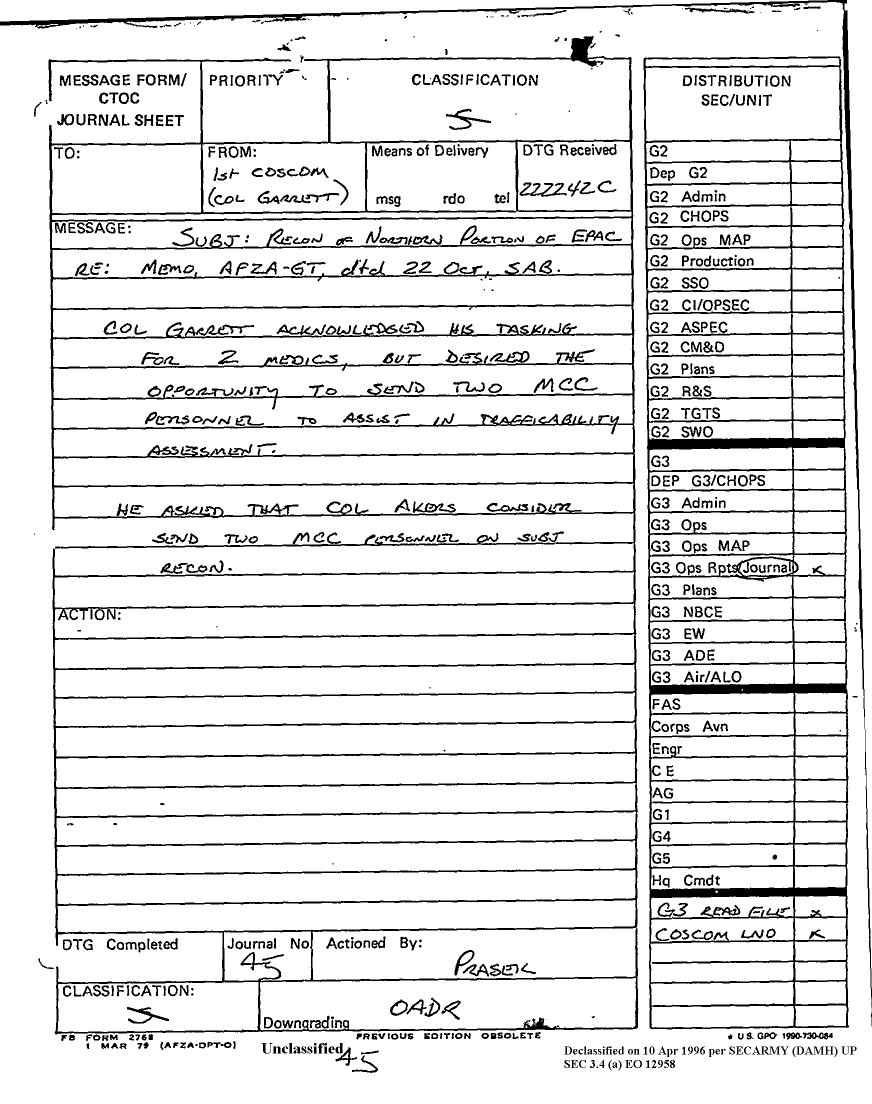 MESSAGE FORM/
CTOC
JOURNAL SHEET
PRIORITY
CLASSIFICATION
S
TO:
FROM:
1st COSCOM
(COL GARRETT)
Means of Delivery
msg rdo tel
DTG Received
222242C
MESSAGE:
SUBJ: RECON OF NORTHERN PORTION OF EPAC
RE: MEMO, AFZA-GT, dtd 22 OCT, SAB.
COL GARRETT ACKNOWLEDGED HIS TASKING
FOR 2 MEDICS, BUT DESIRED THE
OPPORTUNITY TO SEND TWO MCC
PERSONNEL TO ASSIST IN TRAFFICABILITY
ASSESSMENT.
HE ASKED THAT COL AKERS CONSIDER
SEND TWO MCC PERSONNEL ON SUBJ
RECON.
ACTION:
DTG Completed
Journal No.
45
Actioned By:
PRASEK
CLASSIFICATION:
S
Downgrading
OADR
FB FORM 2768
1 MAR 79 (AFZA-DPT-O)
PREVIOUS EDITION OBSOLETE
Unclassified
45
DISTRIBUTION
SEC/UNIT
G2
Dep G2
G2 Admin
G2 CHOPS
G2 Ops MAP
G2 Production
G2 SSO
G2 CI/OPSEC
G2 ASPEC
G2 CM&D
G2 Plans
G2 R&S
G2 TGTS
G2 SWO
G3
DEP G3/CHOPS
G3 Admin
G3 Ops
G3 Ops MAP
G3 Ops Rpts Journal x
G3 Plans
G3 NBCE
G3 EW
G3 ADE
G3 Air/ALO
FAS
Corps Avn
Engr
C E
AG
G1
G4
G5
Hq Cmdt
G3 READ FILE x
COSCOM LNO x
* U.S. GPO 1990-730-084
Declassified on 10 Apr 1996 per SECARMY (DAMH) UP
SEC 3.4 (a) EO 12958